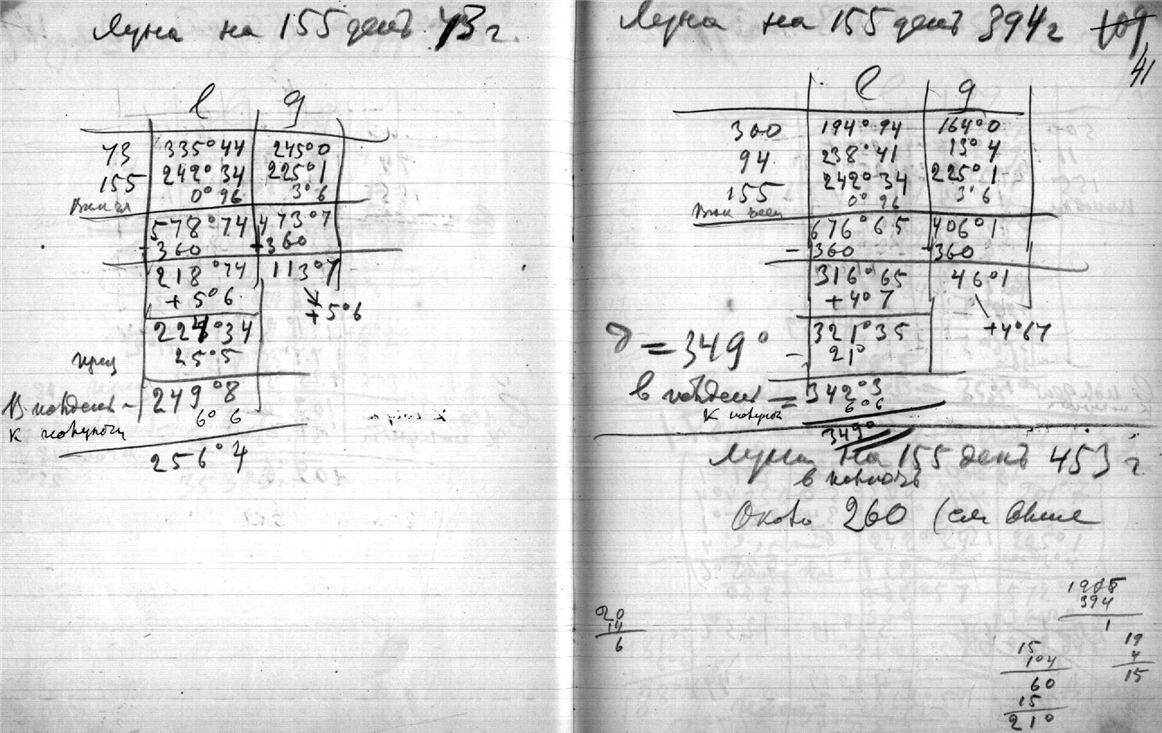 Луна на 155 день 73 г.
l g
73 335°44 245°0
155 242°34 225°1
0°96 3°6
578°74 473°7
-360 -360
218°74 113°7
+5°6 +5°6
224°34
25°5
249°8
В полдень
6°6
К полуночи
256°4
Луна на 155 день 394 г 109
41
l g
300 194°94 164°0
94 238°41 13°4
155 242°34 225°1
0°96 3°6
676°65 406°1
-360 -360
316°65 46°1
+4°7 +4°67
321°35
- 21°
= 349°
в полдень = 342°3
К полуночи 6°6
349°
Луна на 155 день 453 г
в полночь
Около 260 (см выше
20
14
6
394
1
15
104
60
15
210
19
4
15